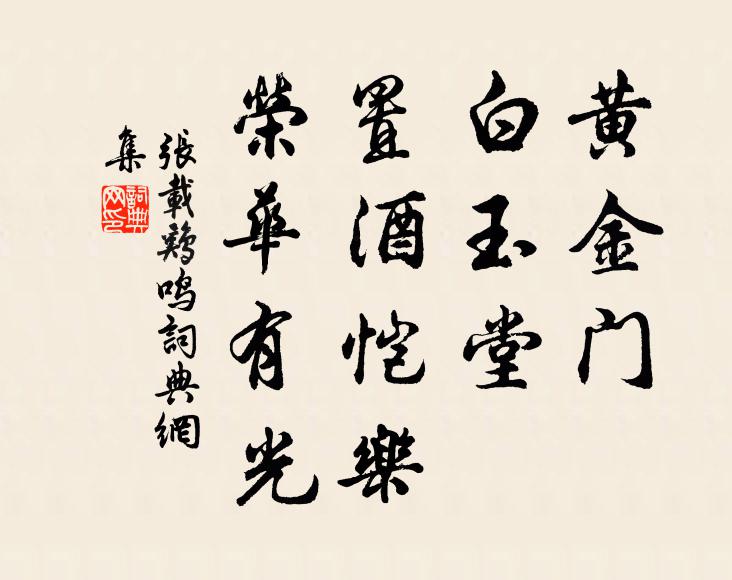 黄金门
白玉堂
置酒恺樂
榮華有光
張載鷄鳴詞典網
集
詞典網印